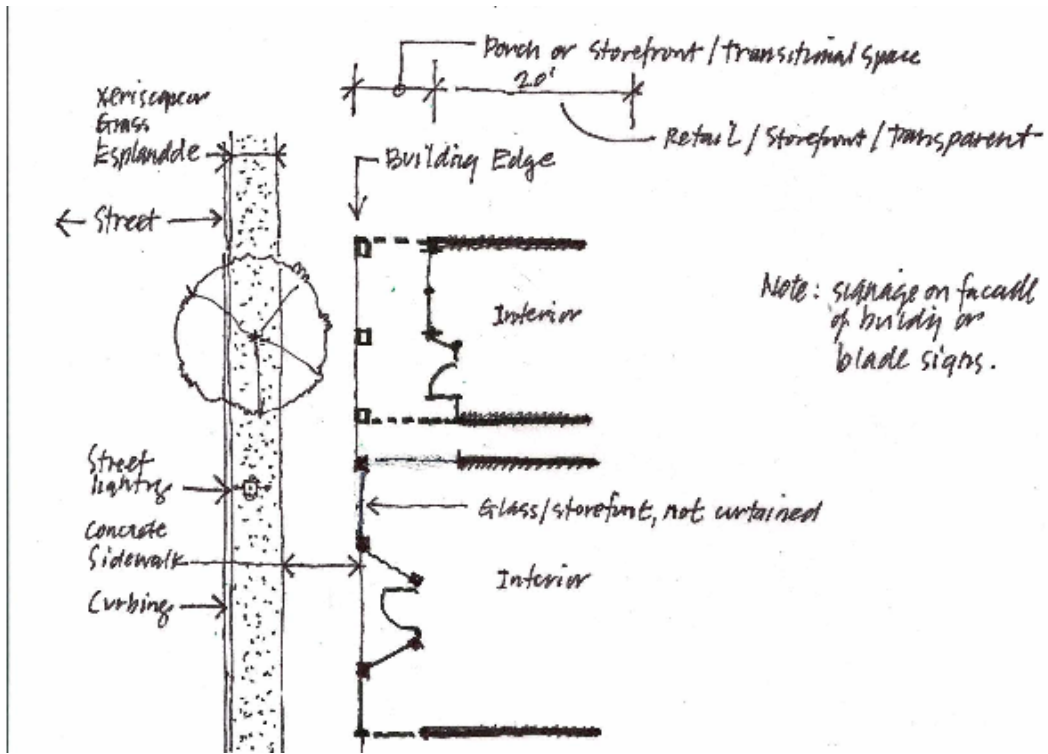 Porch or storefront / transitional space
20'
Xeriscape or
Grass
Esplanade
Retail / Storefront / Transparent
Building Edge
← Street →
Interior
Note: signage on facade
of buildg or
blade signs.
Street
lightng
Glass/storefront, not curtained
Concrete
Sidewalk
Interior
Curbing